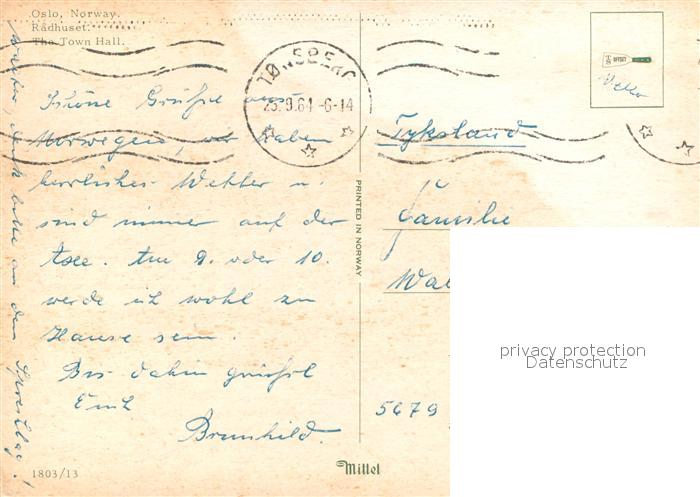 Oslo, Norway.
Rådhuset.
The Town Hall.
TØNSBERG
23.9.64-6-14
OFFSET
Schöne Grüße aus
Norwegen, wir haben
herrliches Wetter u.
sind immer auf der
See. Am 9. oder 10.
werde ich wohl zu
Hause sein.
Bis dahin grüßt
Euch
Brunhild.
denk bitte an den
Tyksland
Familie
Wal
5679
PRINTED IN NORWAY
privacy protection
Datenschutz
1803/13
Mittet